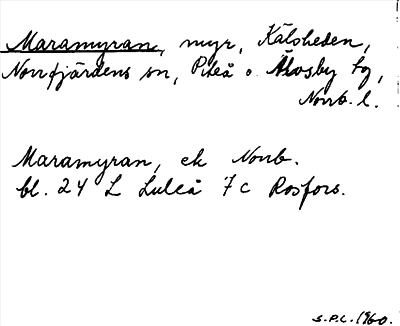 Maramyran, myr, Kälsheden,
Norrfjärdens sn, Piteå o. Älvsby tg,
Norrb. l.
Maramyran, ek Norrb.
bl. 24 L Luleå 7 c Rosfors.
S.P.L. 1960.